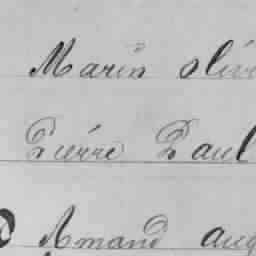 Marin oliv
Piérre Paul
Amand aug